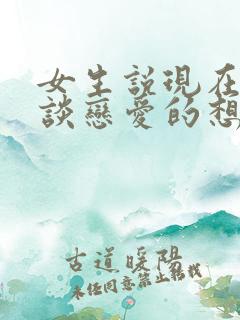 女生說現在
談戀愛的想
古道暖陽
未經同意禁止轉載